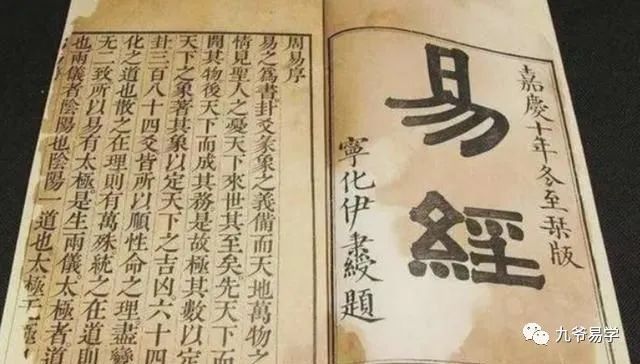 嘉慶十年冬至栞版
易經
寧化伊秉綬題
周易序
易之爲書卦爻彖象之義備而天地萬物之
情見聖人之憂天下來世其至矣先天下而
開其物後天下而成其務是故極其數以定
天下之象著其象以定天下之吉凶六十四
卦三百八十四爻皆所以順性命之理盡變
化之道也散之在理則有萬殊統之在道則
无二致所以易有太極是生兩儀太極者道
也兩儀者陰陽也陰陽一道也太極无極
九爷易学